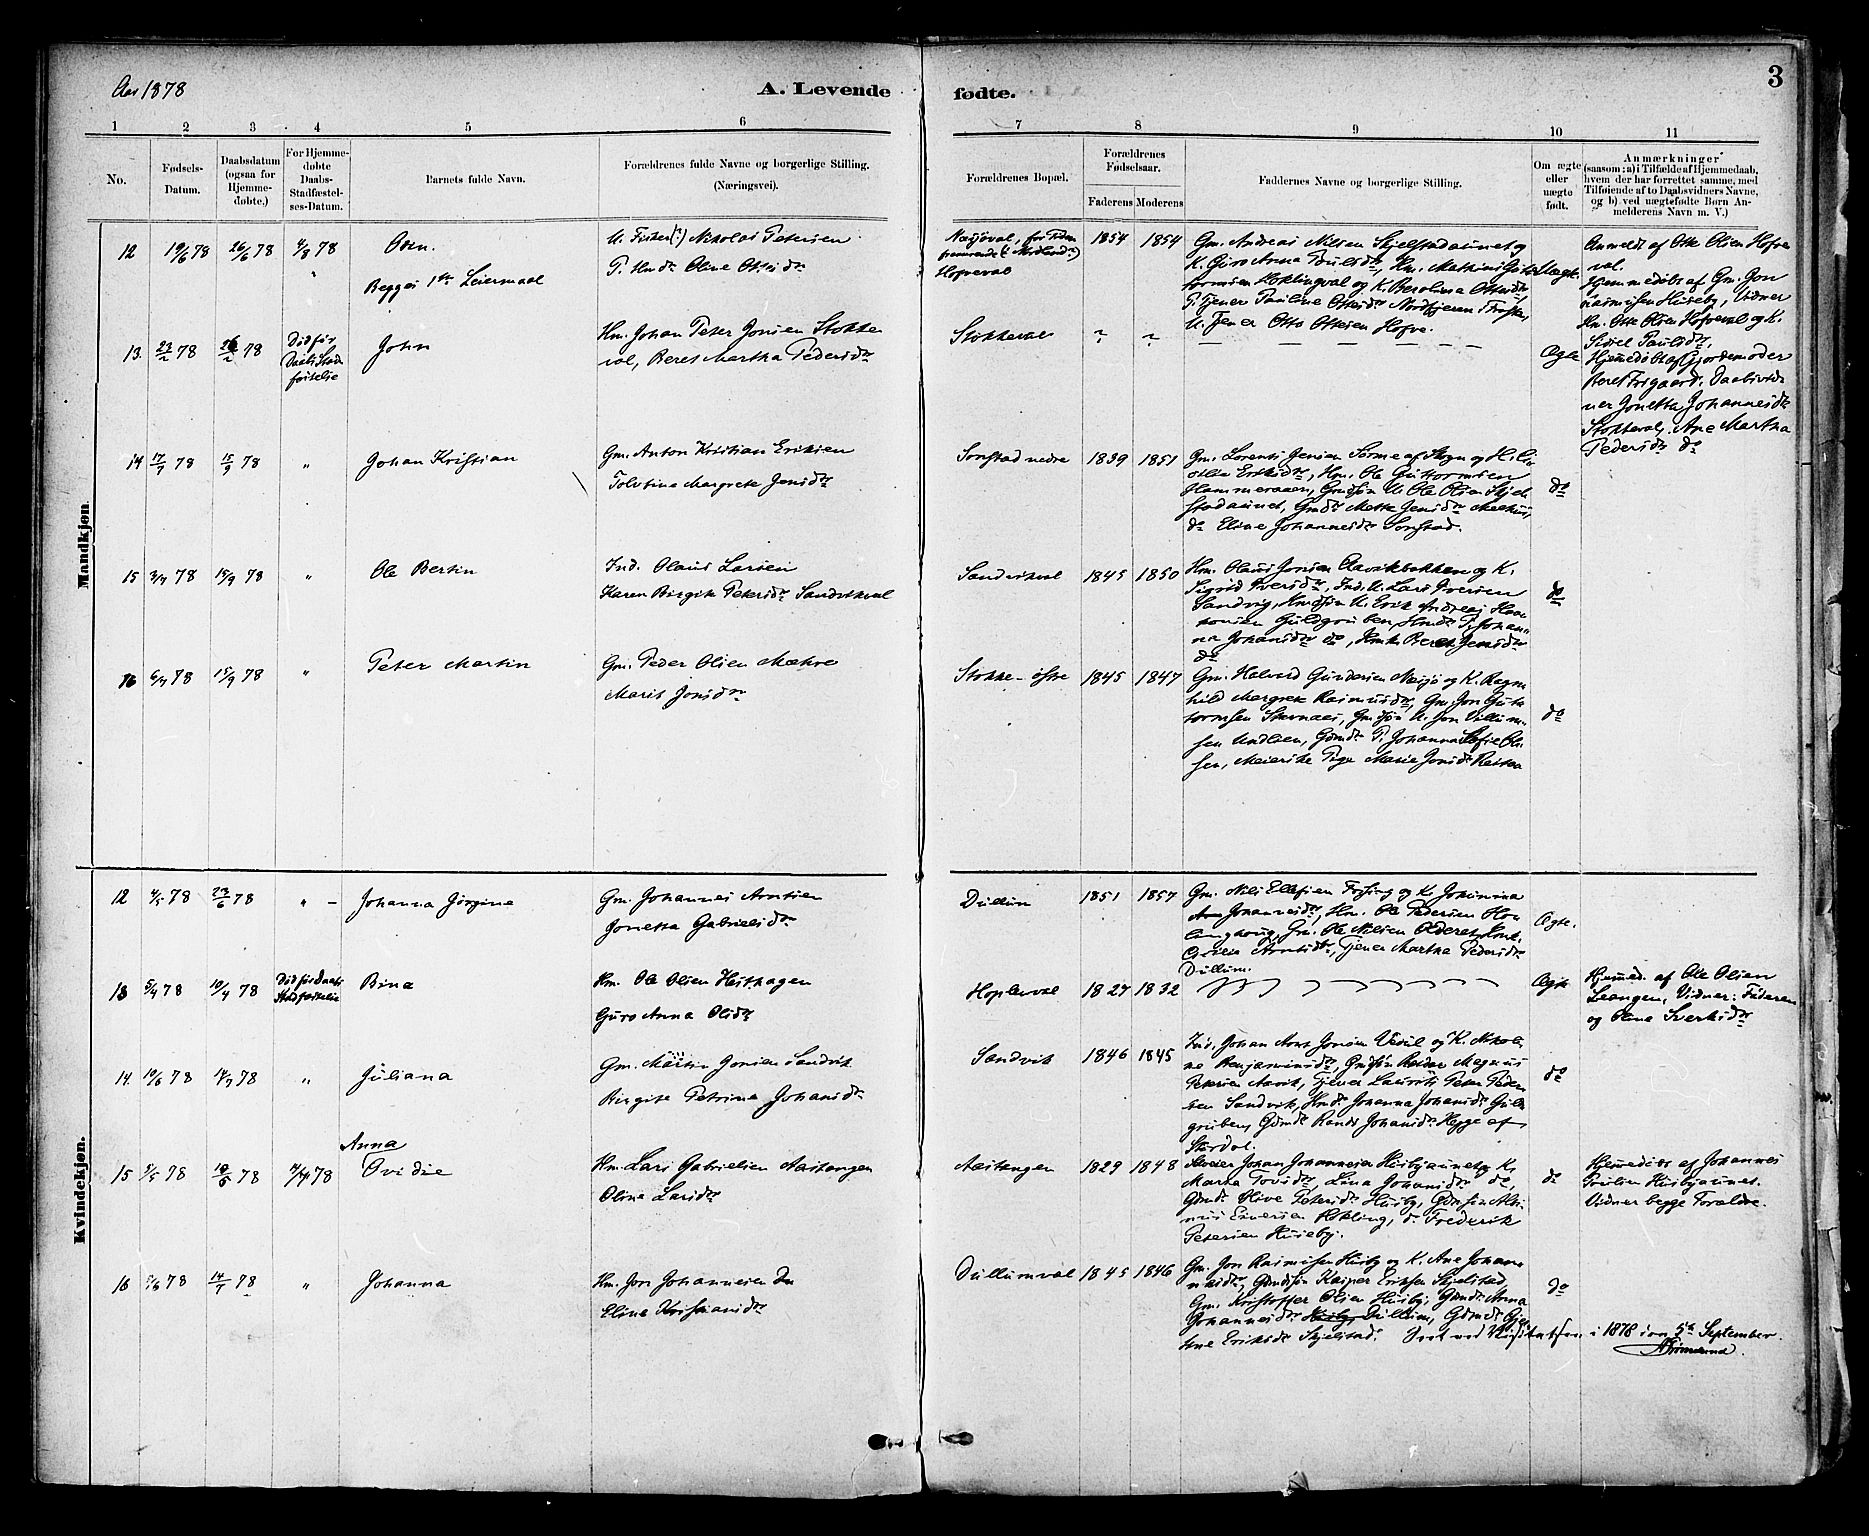 Aar 1878
A. Levende fødte.
3
1 2 3 4 5 6 7 8 9 10 11
No.
Fødsels-
Datum.
Daabsdatum
(ogsaa for
Hjemme-
døbte.)
For Hjemme-
døbte
Daabs-
Stadfæstel-
ses-Datum.
Barnets fulde Navn.
Forældrenes fulde Navne og borgerlige Stilling.
(Næringsvei).
Forældrenes Bopæl.
Forældrenes
Fødselsaar.
Faderens Moderens
Faddernes Navne og borgerlige Stilling.
Om ægte
eller
uægte
født.
Anmærkninger
(saasom: a) i Tilfælde af Hjemmedaab,
hvem der har forrettet samme, med
Tilføiende af to Daabsvidners Navne,
og b) ved uægtefødte Børn An-
melderens Navn m. V.)
Mandkjøn
12 19/6 78 26/6 78 4/8 78
Begges 1ste Leiermaal
U. Fisker(?) Nikolai Petersen
P. Hmdtr Oline Ottesdtr
Hofreval
1854 1854
Gm. Andreas Nilsen Skjelstadaunet og
K. Guro Anna Poulsdtr, Hm. Mathias Gut-
tormsen Hoklingval og K. Berolina Ottesdtr
P. Tjener Pauline Ottesdtr
U. Tjener Otto Ottesen Hofre.
Uægte
Anmeldt af Otte Olsen Hofre-
val.
Hjemmedøbt af Gm. Jon
Rasmussen Huseby, Vidner
Hm. Otte Olsen Hofreval og K.
Sissel Paulsdtr.
13. 23/2 78 26/2 78
Død før
Daabs Stad-
fæstelse
John
Hm. Johan Peter Jonsen Stokke-
val, Beret Martha Pedersdtr
Stokkeval ? ?
Ægte
Hjemmedøbt af Gjordemoder
Beret Frigaard. Daabsvid-
ner Jonetta Johannesdtr
Stokkeval, Ane Martha
Pedersdtr do
14 17/7 78 15/9 78 "
Johan Kristian
Gm. Anton Kristian Eriksen
Tolotina Margrete Jensdtr
Sonstad nedre 1839 1851
Gm. Lorents Jensen
Eriksdtr, Hm. Ole Guttormsen
Hammeraaen, Gmdsøn U. Ole Olsen Skjel-
stadaunet, Gmdtr Mette Jensdtr
do Eline Johannesdtr Sonstad.
do
15 3/7 78 15/9 78 "
Ole Bertin
Ind. Olaus Larsen
Karen Birgite Petersdtr Sandvikval
Sandvikval 1845 1850
Hm. Olaus Jonsen Aavikbakken og K.
Sigrid Iversdtr, Ind. U. Lars Iversen
Sandvig, Hmdsøn U. Erik Andreas Haa-
konsen Guldgruben, Hmdtr P. Johan-
na Johansdtr do, Hmk. Beret Jensdtr
do
do
16 6/7 78 15/9 78 "
Peter Martin
Gm. Peder Olsen Mæhre
Marit Jonsdtr
Stokke - østre 1845 1847
Gm. Halvard Gundersen Næsjø og K. Ragn-
hild Margrete Rasmusdtr, Gm. Jon Gut-
tormsen Stavnaas, Gmdsøn U. Jon Villum-
sen Undlien, Gdmdtr P. Johanna Sofie Ol-
sen, Meierske Pige Marie Jonsdtr
do
Kvindekjøn.
12 4/5 78 23/6 78 " -
Johanna Jørgine
Gm. Johannes Arntsen
Jonetta Gabrielsdtr
Dullum 1851 1857
Gm. Nils Ellefsen Fossing og K. Jokumina
Johannesdtr, Hm. Ole Pedersen Hov-
langhaug, Gm. Ole Nilsen
Arntsdtr, Tjener Martha Pedersdtr
Dullum.
Ægte.
13 5/4 78 10/4 78
Død før Daabs
Stadfæstelse
Bina
Hm. Ole Olsen Hasthagen
Guro Anna Olsdtr
Hopleval 1827 1832
Ægte
Hjemmed. af Ole Olsen
Leangen, Vidner: Faderen
og Oline Sverkisdtr
14. 10/6 78 14/7 78 "
Juliana
Gm. Martin Jonsen Sandvik
Birgite Petrine Johansdtr
Sandvik 1846 1845
Ind. Johan Arnt Jonsen Vedul og K. Nikoli-
ne Benjaminsdtr, Gmdsøn Reidar Magnus
Petersen Aavik, Tjener Laurits Peter Peder-
sen Sandvik, Hmdtr Johanna Johansdtr Guld-
gruben, Gdmdtr Randi Johansdtr Hegge af
Størdal.
do
15 5/5 78 10/6 78 14/7 78
Anna
Ovidie
Hm. Lars Gabrielsen Aastangen
Olina Larsdtr
Aastangen 1829 1848
Skræder Johan Johannesen Husbyaunet og K.
Marta Tovsdtr, Lina Johansdtr do,
Gdmdtr Olive Petersdtr Husby, Gdmsøn Albi-
nus Einersen Hokling, do Frederik
Petersen Huseby.
do
Hjemmedøbt af Johannes
Poulsen Husbyaunet.
Vidner begge Forældre.
16 5/6 78 14/7 78 "
Johanna
Hm. Jon Johannesen Du
Eline Kristiansdtr
Dullumval 1845 1846
Gm. Jon Rasmussen Husby og K. Ane Johan-
nesdtr, Gdmdsøn Kasper Eriksen Skjelstad,
Gm. Kristoffer Olsen Husby, Gdmdtr Anna
Johannesdtr Dullum, Gdmdtr
Eriksdtr Skjelstad.
do
Seet ved Visitatsen i 1878 den 5te September.